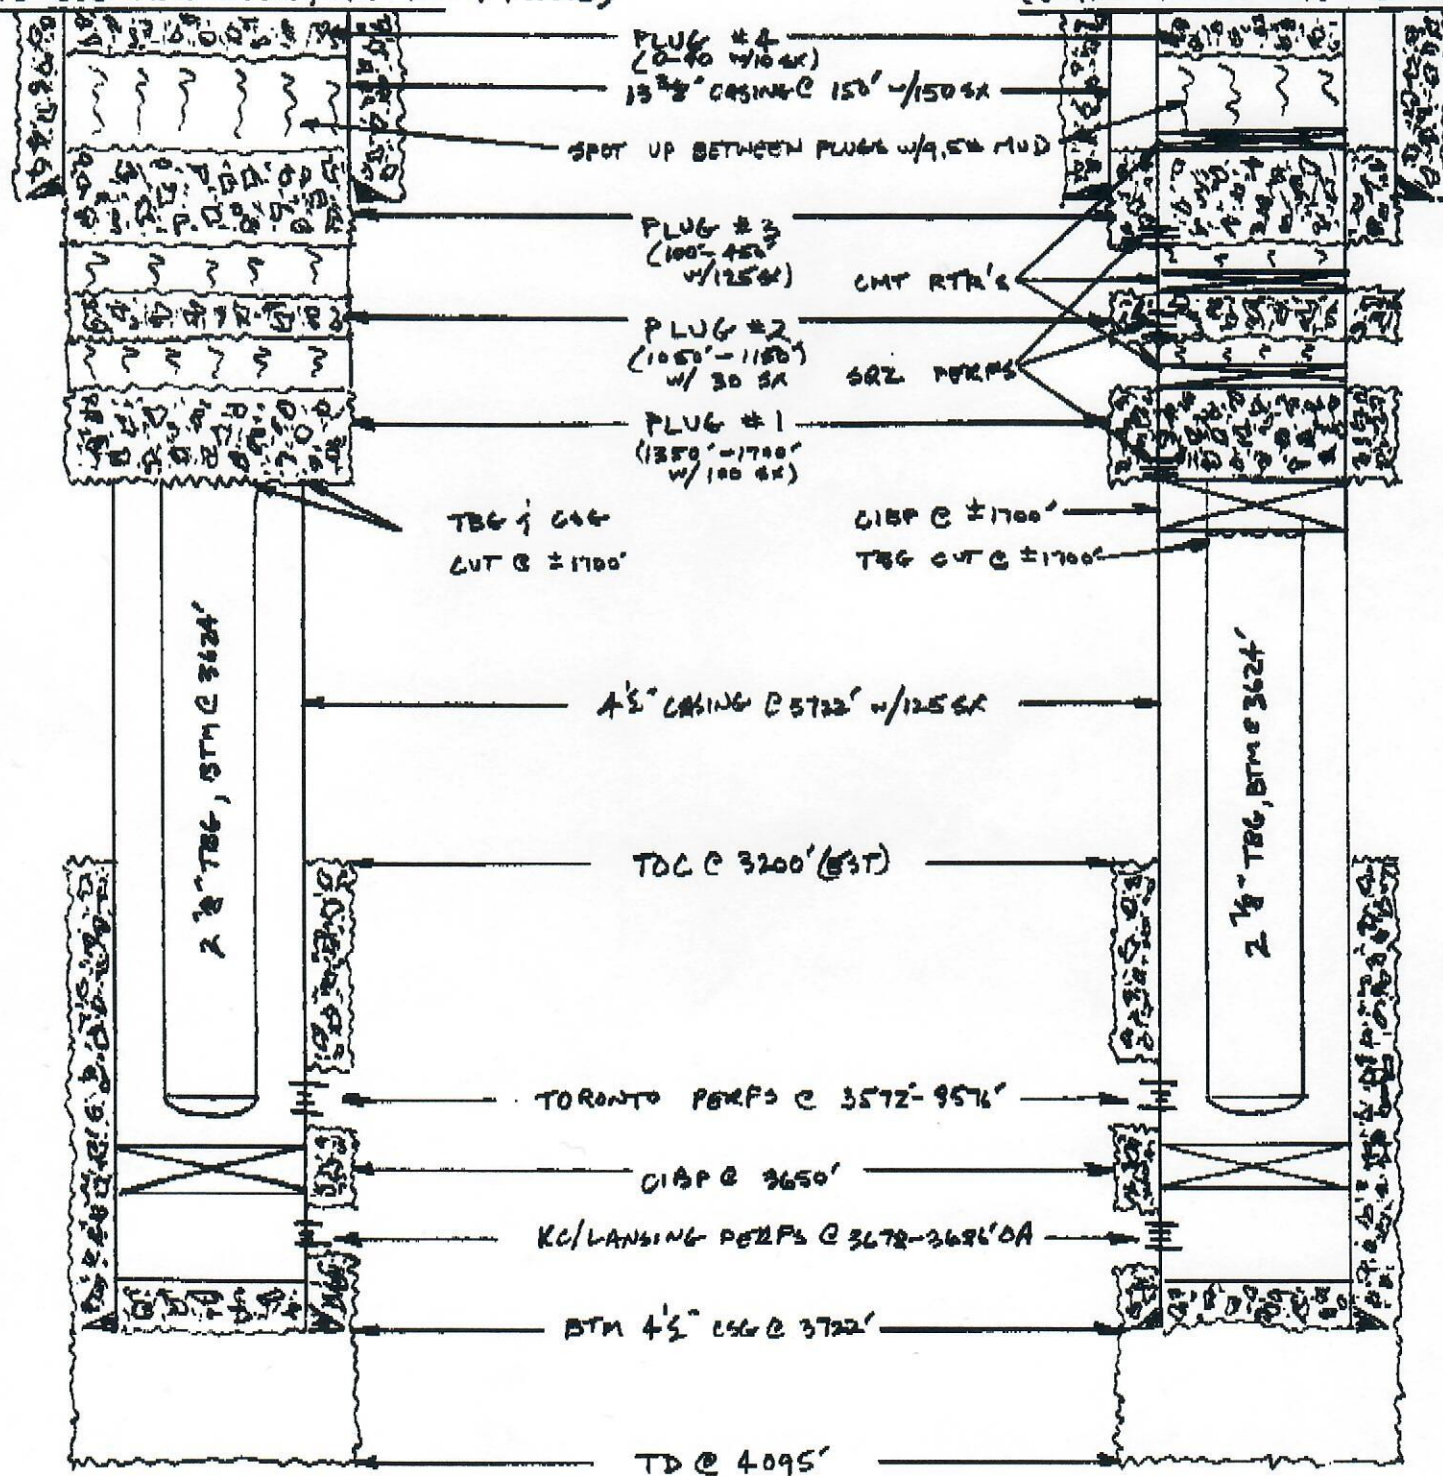 PLUG #4
(0-40 w/10 SX)
13 3/8" CASING @ 150' w/150 SX
SPOT UP BETWEEN PLUGS w/9.5# MUD
PLUG #3
(100'-450'
w/125 SX)
CMT RTR'S
PLUG #2
(1050'-1150'
w/ 30 SX
SQZ PERFS
PLUG #1
(1350'-1700'
w/ 100 SX)
TBG & CSG
CUT @ ±1700'
CIBP @ ±1700'
TBG CUT @ ±1700'
2 7/8" TBG, BTM @ 3624'
2 7/8" TBG, BTM @ 3624'
4 1/2" CASING @ 3722' w/125 SX
TOC @ 3200' (EST)
TORONTO PERFS @ 3572'-3576'
CIBP @ 3650'
KC/LANSING PERFS @ 3678-3686' OA
BTM 4 1/2" CSG @ 3722'
TD @ 4095'